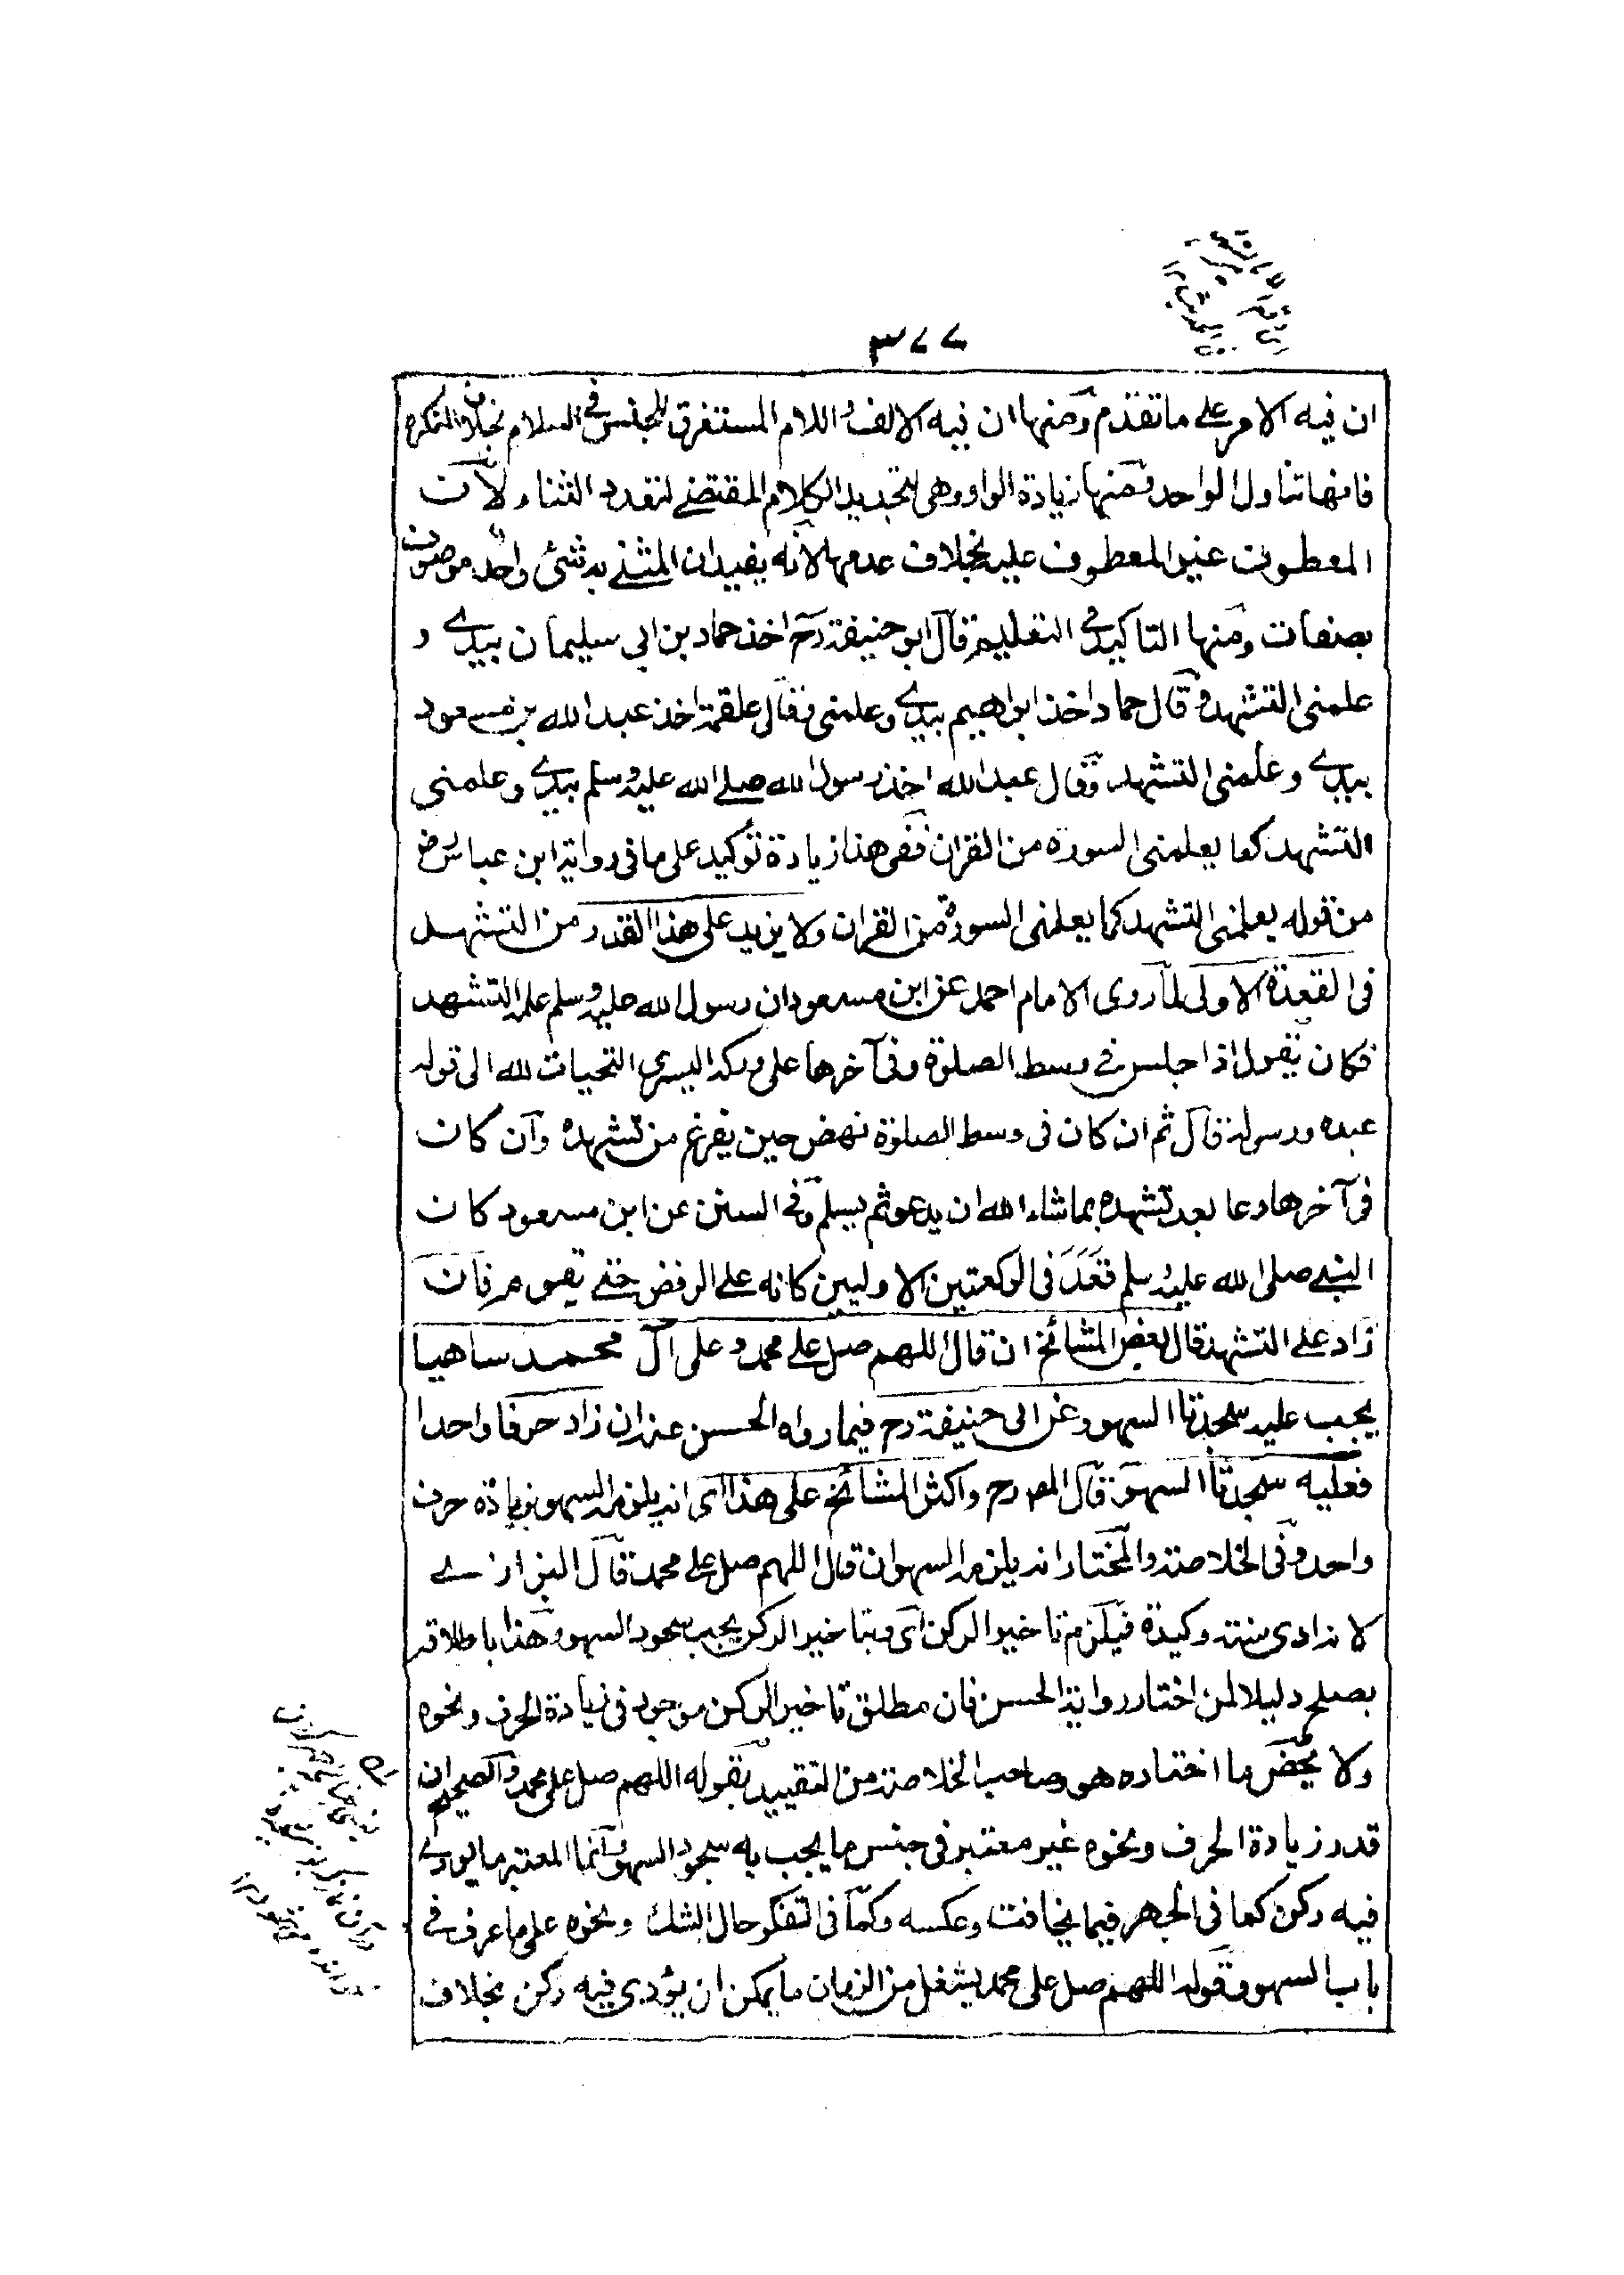 ٣٧٧
ان فيه الامر على ما تقدم ومنها ان فيه الالف واللام المستغرق للجنس فى السلام بخلاف النكرة
فانها تناول الواحد ومنها زيادة الواو وهى لتجديد الكلام المقتضے لتعدد الثناء ولان
المعطوف غير المعطوف عليه بخلاف عدمها لانه يفيد ان المثنے به شئ واحد موصوف
بصفات ومنها التاكيد فى التعليم قال ابو حنيفة رح اخذ حماد بن ابى سليمان بيدے و
علمنى التشهد وقال حماد اخذ ابراهيم بيدے وعلمنى وقال علقمة اخذ عبد الله بن مسعود
بيدے وعلمنى التشهد وقال عبد الله اخذ رسول الله صلے الله عليه وسلم بيدے وعلمنى
التشهد كما يعلمنى السورة من القران ففى هذا زيادة توكيد على ما فى رواية ابن عباس رض
من قوله يعلمنى التشهد كما يعلمنى السورة من القران ولا يزيد على هذا القدر من التشهد
فى القعدة الاولى لما روى الامام احمد عن ابن مسعود ان رسول الله عليه وسلم علمه التشهد
فكان يقول اذا جلس فے وسط الصلوة وفى آخرها على وركه اليسرى التحيات لله الى قوله
عبده ورسوله قال ثم ان كان فى وسط الصلوة نهض حين يفرغ من تشهده وان كان
فى آخرها دعا بعد تشهده بما شاء الله ان يدعو ثم يسلم وفے السنن عن ابن مسعود كان
النبے صلى الله عليه وسلم قعد فى الركعتين الاوليين كانه علے الرضف حتے يقوم فان
زاد علے التشهد قال بعض المشائخ ان قال اللهم صل علے محمد وعلى آل محمد ساهيا
يجب عليه سجدتا السهو وعن ابى حنيفة رح فيما رواه الحسن عنه ان زاد حرفا واحدا
فعليه سجدتا السهو قال المص رح واكثر المشائخ على هذا اى انه يلزمه السهو بزيادة حرف
واحد وفى الخلاصة والمختار انه يلزمه السهو ان قال اللهم صل علے محمد قال البزازے
لانه ادى سنة وكيدة فيلزم تاخير الركن اى وبتاخير الركن يجب سجود السهو وهذا باطلاقه
يصلح دليلا لمن اختار رواية الحسن فان مطلق تاخير الركن موجود فى زيادة الحرف ونحوه
ولا يمحض ما اختاره هو وصاحب الخلاصة من التقييد بقوله اللهم صل على محمد والصحيح ان
قدر زيادة الحرف ونحوه غير معتبر فى جنس ما يجب به سجود السهو وانما المعتبر ما يودے
فيه ركن كما فى الجهر فيما يخافت وعكسه وكما فى التفكر حال الشك ونحوه على ما عرف فے
باب السهو وقوله اللهم صل على محمد يشغل من الزمان ما يمكن ان يؤدى فيه ركن بخلاف